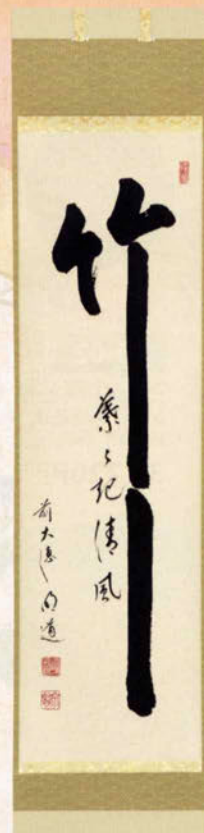 竹
葉々起清風
前大徳明道